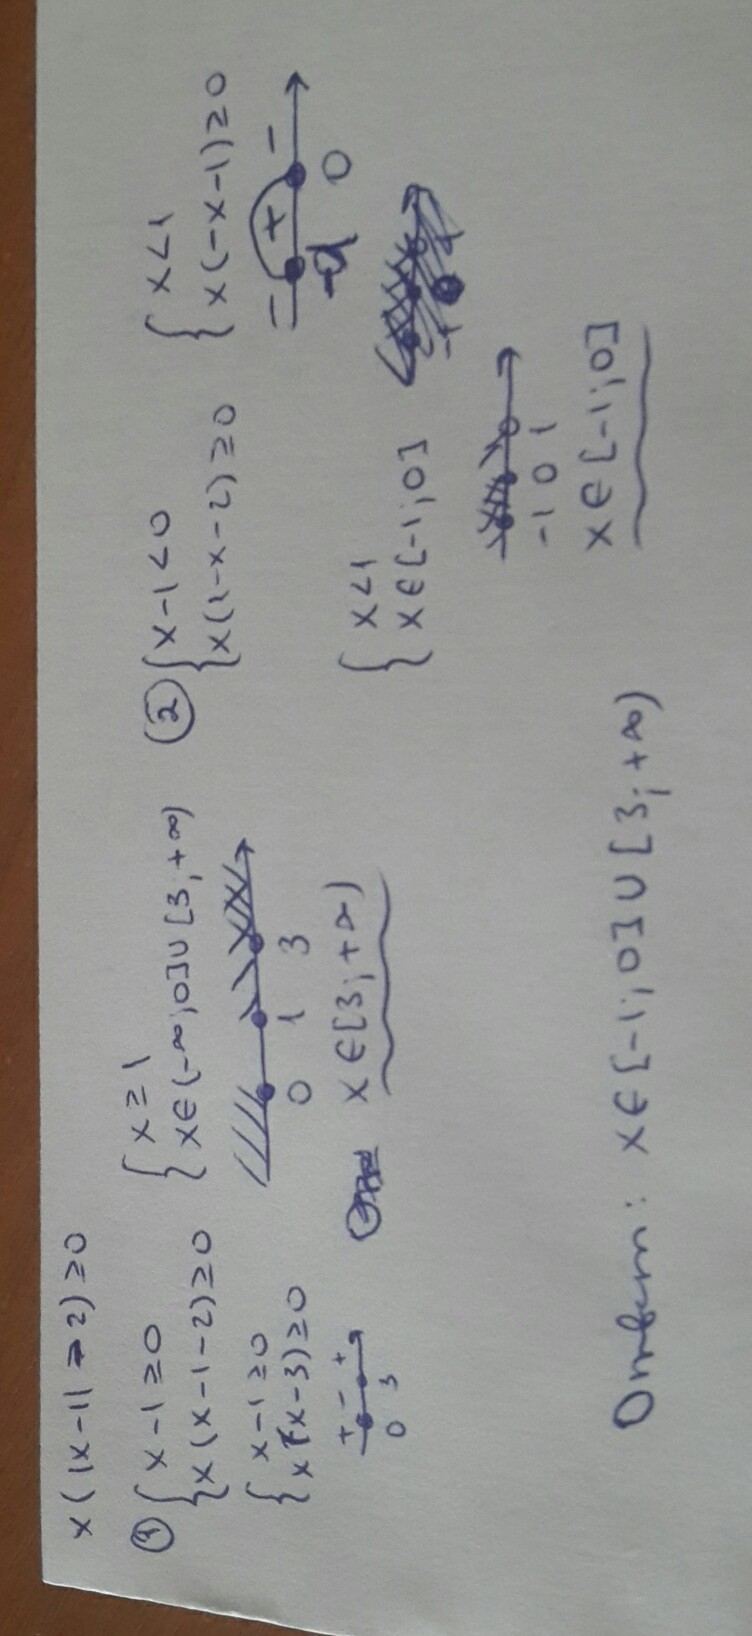 x(|x-1|-2)≥0
① { x-1≥0
x(x-1-2)≥0
{ x-1≥0
x(x-3)≥0
+ - +
0 3
{ x≥1
x∈(-∞;0]∪[3;+∞)
0 1 3
x∈[3;+∞)
② { x-1<0
x(1-x-2)≥0
{ x<1
x(-x-1)≥0
- + -
-1 0
{ x<1
x∈[-1;0]
-1 0 1
x∈[-1;0]
Ответ: x∈[-1;0]∪[3;+∞)